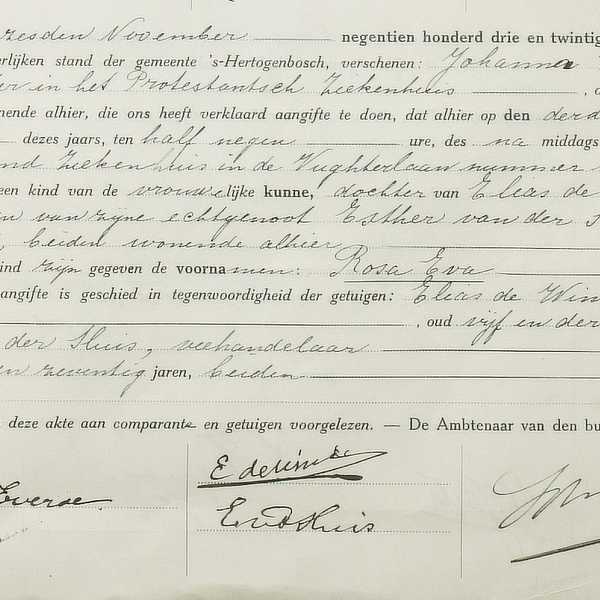 zesden November negentien honderd drie en twintig
erlijken stand der gemeente 's-Hertogenbosch, verschenen: Johanna
ter in het Protestantsch Ziekenhuis
nende alhier, die ons heeft verklaard aangifte te doen, dat alhier op den derd
dezes jaars, ten half negen ure, des na middags
Ziekenhuis in de Vughterlaan nummer
een kind van de vrouwelijke kunne, dochter van Elias de
en van zijne echtgenoot Esther van der
, beiden wonende alhier
ind zijn gegeven de voornamen: Rosa Eva
aangifte is geschied in tegenwoordigheid der getuigen: Elias de Win
, oud vijf en der
der Sluis, veehandelaar
en zeventig jaren, beiden
deze akte aan comparante en getuigen voorgelezen. — De Ambtenaar van den bu
E de Winter
Everse
EvdSluis